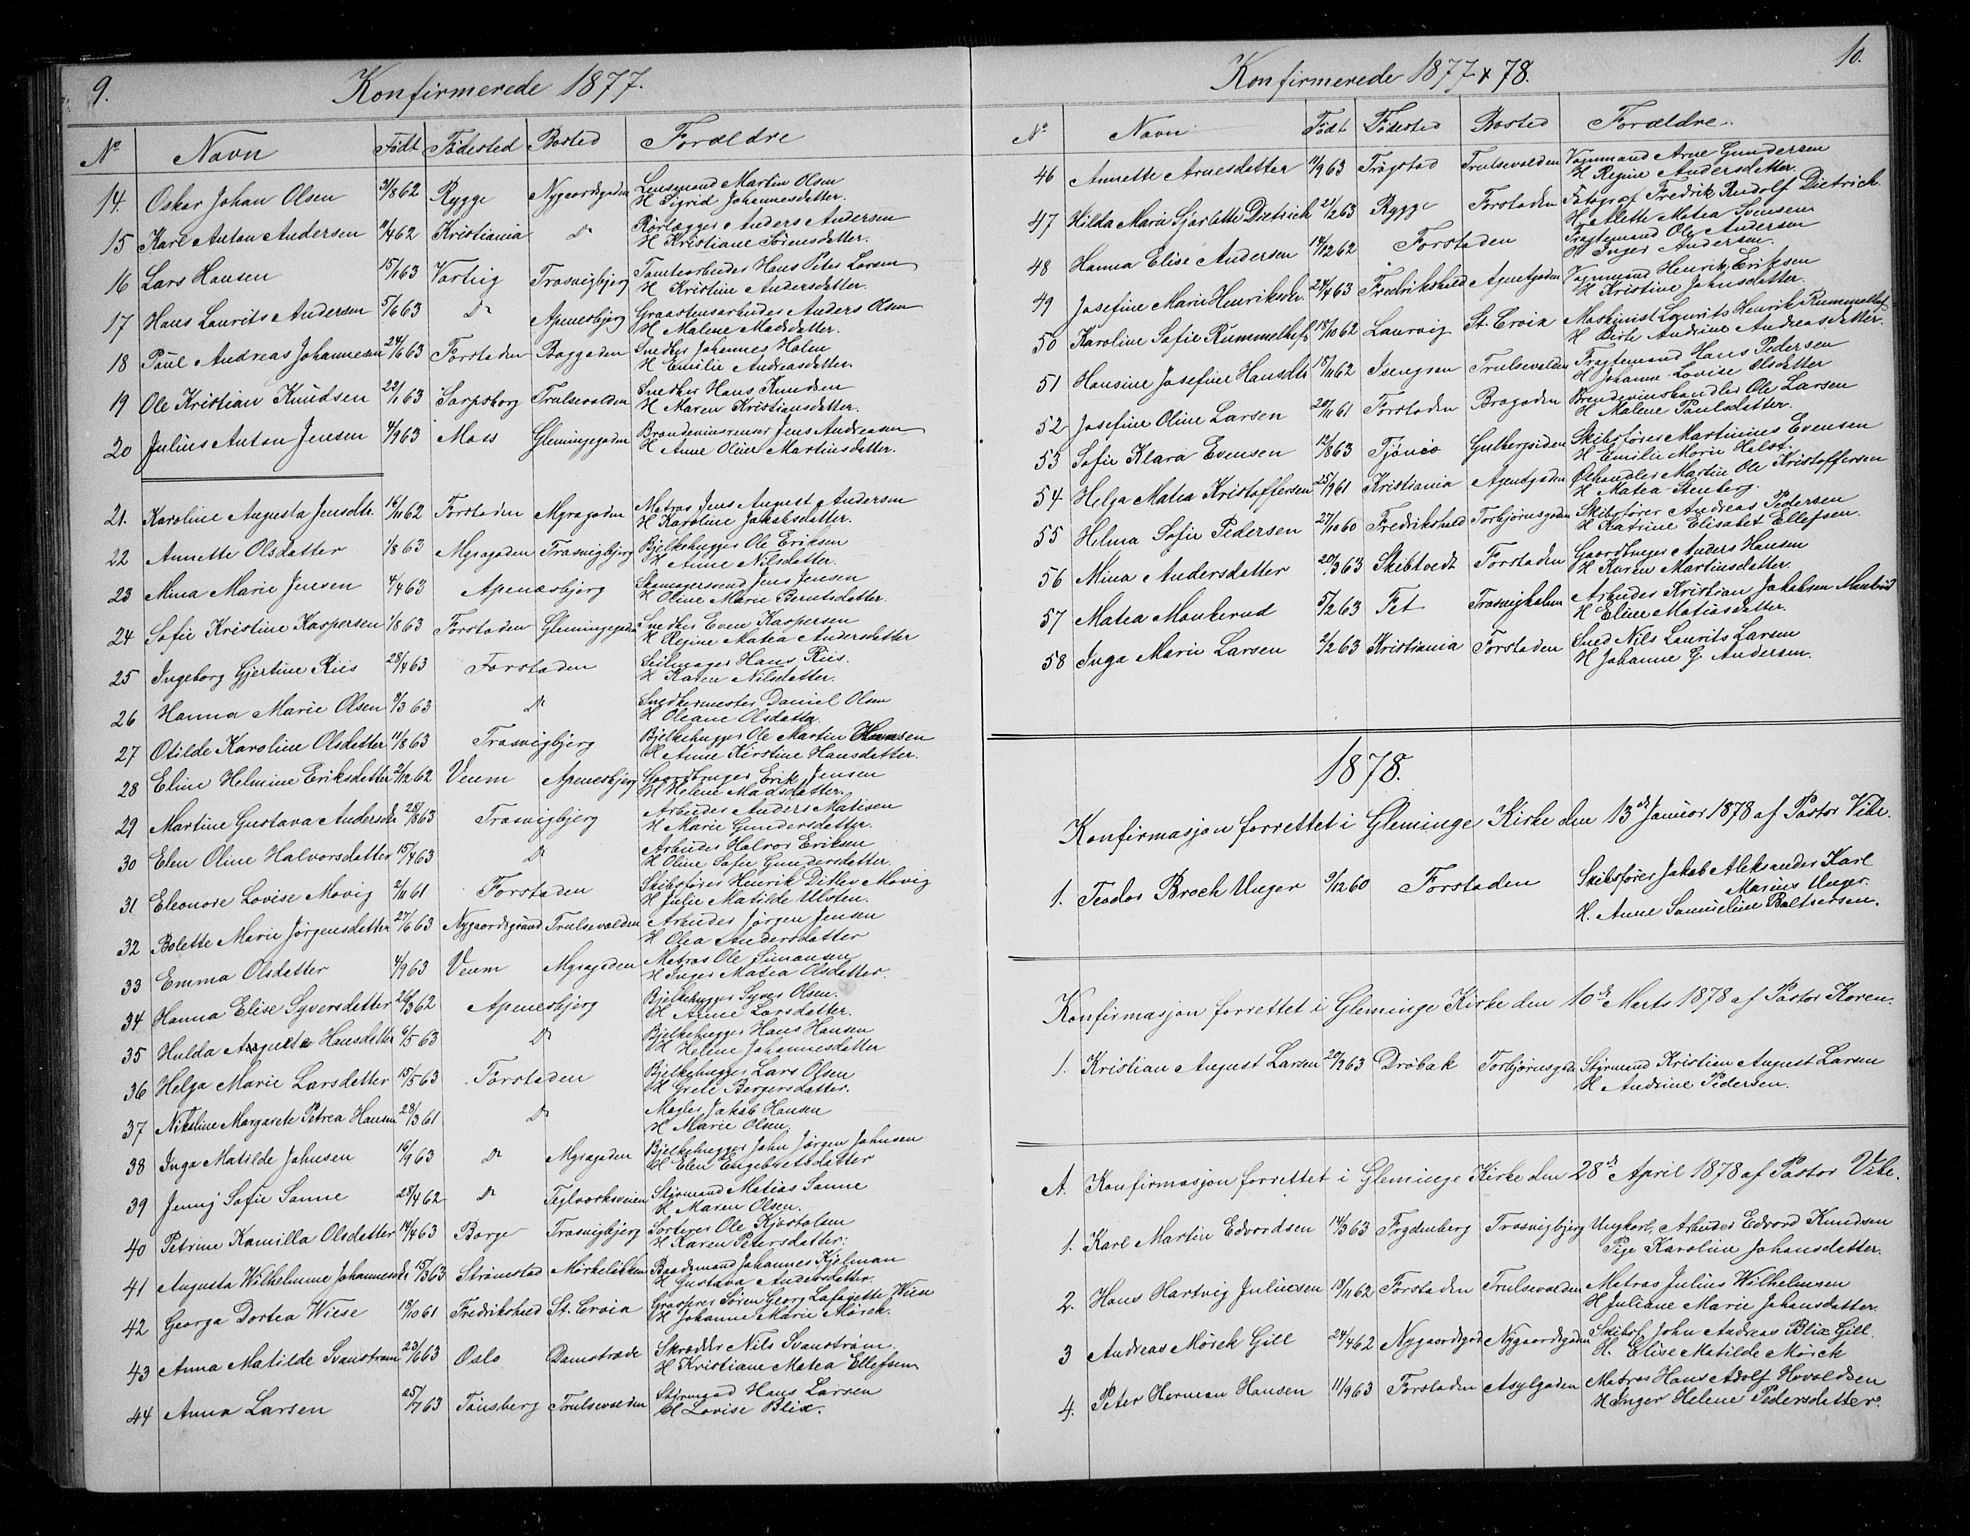 9.
Konfirmerede 1877.
No Navn Født Fødested Bosted Forældre
14. Oskar Johan Olsen 31/8 62 Rygge Nygaardsgaden Lensmand Martin Olsen
H Sigrid Johannesdatter.
15 Karl Anton Andersen 7/4 62 Kristiania Do Rørlægger Anders Andersen
H Kristiane Sørensdatter.
16 Lars Hansen 15/1 63 Varteig Trosvigbjerg Tomtearbeider Hans Peter Larsen
H Kristine Andersdatter.
17 Hans Laurits Andersen 5/6 63 Do Apenesbjerg Graastensarbeider Anders Olsen
H Malene Madsdatter.
18 Paul Andreas Johannesen 24/6 63 Forstaden Baggaden Snedker Johannes Halen
H Emilie Andreasdatter.
19 Ole Kristian Knudsen 22/1 63 Sarpsborg Trulsevolden Snedker Hans Knudsen
H Maren Kristiansdatter.
20 Julius Anton Jensen 4/9 63 Moss Glemingegaden Brændevinsrenser Jens Andreasen
H Anne Oline Martinsdatter.
21. Karoline Augusta Jensdtr. 16/11 62 Forstaden Myragaden Matros Jens August Andersen
H Karoline Jakobsdatter.
22 Annette Olsdatter 1/8 63 Myragaden Trosvigbjerg Bjelkehugger Ole Eriksen
H Anne Nilsdatter.
23 Mina Marie Jensen 4/4 63 Apenæsbjerg Skomagersvend Jens Jensen
H Oline Marie Berntsdatter.
24 Sofie Kristine Kaspersen 1/8 63 Forstaden Glemingegaden Snedker Even Kaspersen
H Regine Matea Andersdatter
25 Ingeborg Gjertine Riis 28/4 63 Forstaden Seilmager Hans Riis.
H Karen Nilsdatter.
26 Hanna Marie Olsen 9/3 63 Do Snedkermester Daniel Olsen
H Oleane Olsdatter.
27 Otilde Karoline Olsdatter 11/8 63 Trosvigbjerg Bjelkehugger Ole Martin Hansen
H Anne Kirstine Hansdatter.
28 Eline Helmine Eriksdatter 2/12 62 Veum Apenesbjerg Gaardbruger Erik Jensen
H Helene Madsdatter.
29 Martine Gustava Andersdtr 28/8 63 Trosvigbjerg Arbeider Anders Matisen
H Marie Gundersdatter.
30 Elen Oline Halvorsdatter 15/4 63 Do Arbeider Halvor Eriksen
H Oline Sofie Gundersdatter.
31 Eleonore Lovise Movig 2/11 61 Forstaden Skibsfører Henrik Ditlev Movig
H Julie Matilde Ulsten.
32 Bolette Marie Jørgensdatter 27/6 63 Nygaardsgrund Trulsevolden Arbeider Jørgen Jensen
H Olea Andersdatter
33 Emma Olsdatter 4/9 63 Veum Myragaden Matros Ole Simonsen
H Inger Matea Olsdatter.
34 Hanna Elise Syversdatter 26/3 62 Apenesbjerg Bjelkehugger Syver Olsen.
H Anne Larsdatter.
35 Hulda Augusta Hansdatter 6/5 63 Do Bjelkehugger Hans Hansen
H Helene Johannesdatter
36 Helga Marie Larsdatter 15/5 63 Forstaden Bjelkehugger Lars Olsen
H Grete Bergersdatter.
37 Nikoline Margarete Petrea Hansen 28/3 61 Do Mægler Jakob Hansen
H Marie Olsen.
38 Inga Matilde Johnsen 16/9 63 Do Myragaden Bjelkehugger John Jørgen Johnsen
H Elen Engebretsdatter
39 Jenny Sofie Sanne 28/4 62 Do Teglværksveien Styrmand Matias Sanne
H Maren Olsen.
40 Petrine Kamilla Olsdatter 14/4 63 Borge Trosvigbjerg Sorterer Ole Kjøstolsen
H Karen Petersdatter.
41 Augusta Wilhelmine Johannesdtr 15/3 63 Strømstad Mørkeløkken Baadsmand Johannes Kjølman
H Gustava Andersdatter.
42 Georga Dortea Wiese 18/10 61 Fredrikshald St. Croix Grosserer Søren Georg Lafayette Wiese
H Johanne Marie Mørck.
43 Anna Matilde Svanstrøm 23/6 63 Oslo Damstræde Skrædder Nils Svanstrøm.
H Kristiane Matea Ellefsen
44 Anna Larsen 25/7 63 Tønsberg Trulsevolden Styrmand Hans Larsen
H Lovise Blix.
10.
Konfirmerede 1877 & 78.
No Navn Født Fødested Bosted Forældre.
46 Annette Arnesdatter 11/9 63 Trøgstad Trulsevolden Vognmand Arne Gundersen
H Regine Andersdatter
47 Hilda Marie Sjarlotte Dietrich 21/2 63 Rygge Forstaden Fotograf Fredrik Rudolf Dietrich.
H Alette Matea Svensen
48 Hanna Elise Andersen 14/12 62 Forstaden Fragtemand Ole Andersen
H Inger Andersen.
49 Josefine Marie Henriksdtr. 24/4 63 Fredrikshald Agentgaden Vognmand Henrik Eriksen
H Kristine Johnsdatter.
50 Karoline Sofie Rummelhof 18/10 62 Laurvig St. Croix Maskinist Laurits Henrik Rummelhof
H Birte Andrine Andreasdatter.
51 Hansine Josefine Hansdtr 18/11 62 Isengsen Trulsevolden Fragtemand Hans Pedersen
H Johanne Lovise Olsdatter
52 Josefine Oline Larsen 20/11 61 Forstaden Bragaden Brændevinshandler Ole Larsen
H Malene Paulsdatter.
53 Sofie Klara Evensen 12/8 63 Tjømø Gulbergsiden Skibsfører Martinius Evensen
H Emilie Marie Helot.
54 Helga Matea Kristoffersen 25/9 61 Kristiania Agentgaden Ølhandler Martin Ole Kristoffersen
H Matea Stenberg.
55 Helma Sofie Pedersen 27/10 60 Fredrikshald Torbjørnsgaden Skibsfører Andreas Pedersen
H Katrine Elisabet Ellefsen.
56 Mina Andersdatter 20/3 63 Skibtvedt Forstaden Gaardbruger Anders Hansen
H Karen Martinsdatter.
57 Matea Monkerud 5/2 63 Fet Trosvigholm Arbeider Kristian Jakobsen Monkerud
H Eline Matiasdatter.
58 Inga Marie Larsen 2/2 63 Kristiania Forstaden Sned Nils Laurits Larsen
H Johanne G. Andersen.
1878.
Konfirmasjon forrettet i Gleminge Kirke den 13de Januar 1878 af Pastor Vibe.
1. Teodor Broch Unger 9/12 60 Forstaden Skibsfører Jakob Aleksander Karl
Marius Unger.
H. Anne Samueline Baltsersen.
Konfirmasjon forrettet i Gleminge Kirke den 10de Marts 1878 af Pastor Koren.
1. Kristian August Larsen 29/2 63 Drøbak Torbjørnsgdn Styrmand Kristian August Larsen
H Andrine Pedersen.
A. Konfirmasjon forrettet i Gleminge Kirke den 28de April 1878 af Pastor Vibe.
1. Karl Martin Edvardsen 14/3 63 Frydenberg Trosvigbjerg Ungkarl, Arbeider Edvard Knudsen
Pige Karoline Johansdatter.
2. Hans Hartvig Juliussen 19/11 62 Forstaden Trulsevolden Matros Julius Wilhelmsen
H Juliane Marie Johansdatter.
3 Andreas Mørck Gill 24/4 62 Nygaardsgd Nygaardsgaden Skibsf. John Andreas Blix Gill.
H. Elise Matilde Mørck
4. Peter Herman Hansen 11/9 63 Forstaden Asylgaden Matros Hans Adolf Hovaldsen
H Inger Helene Pedersdatter.